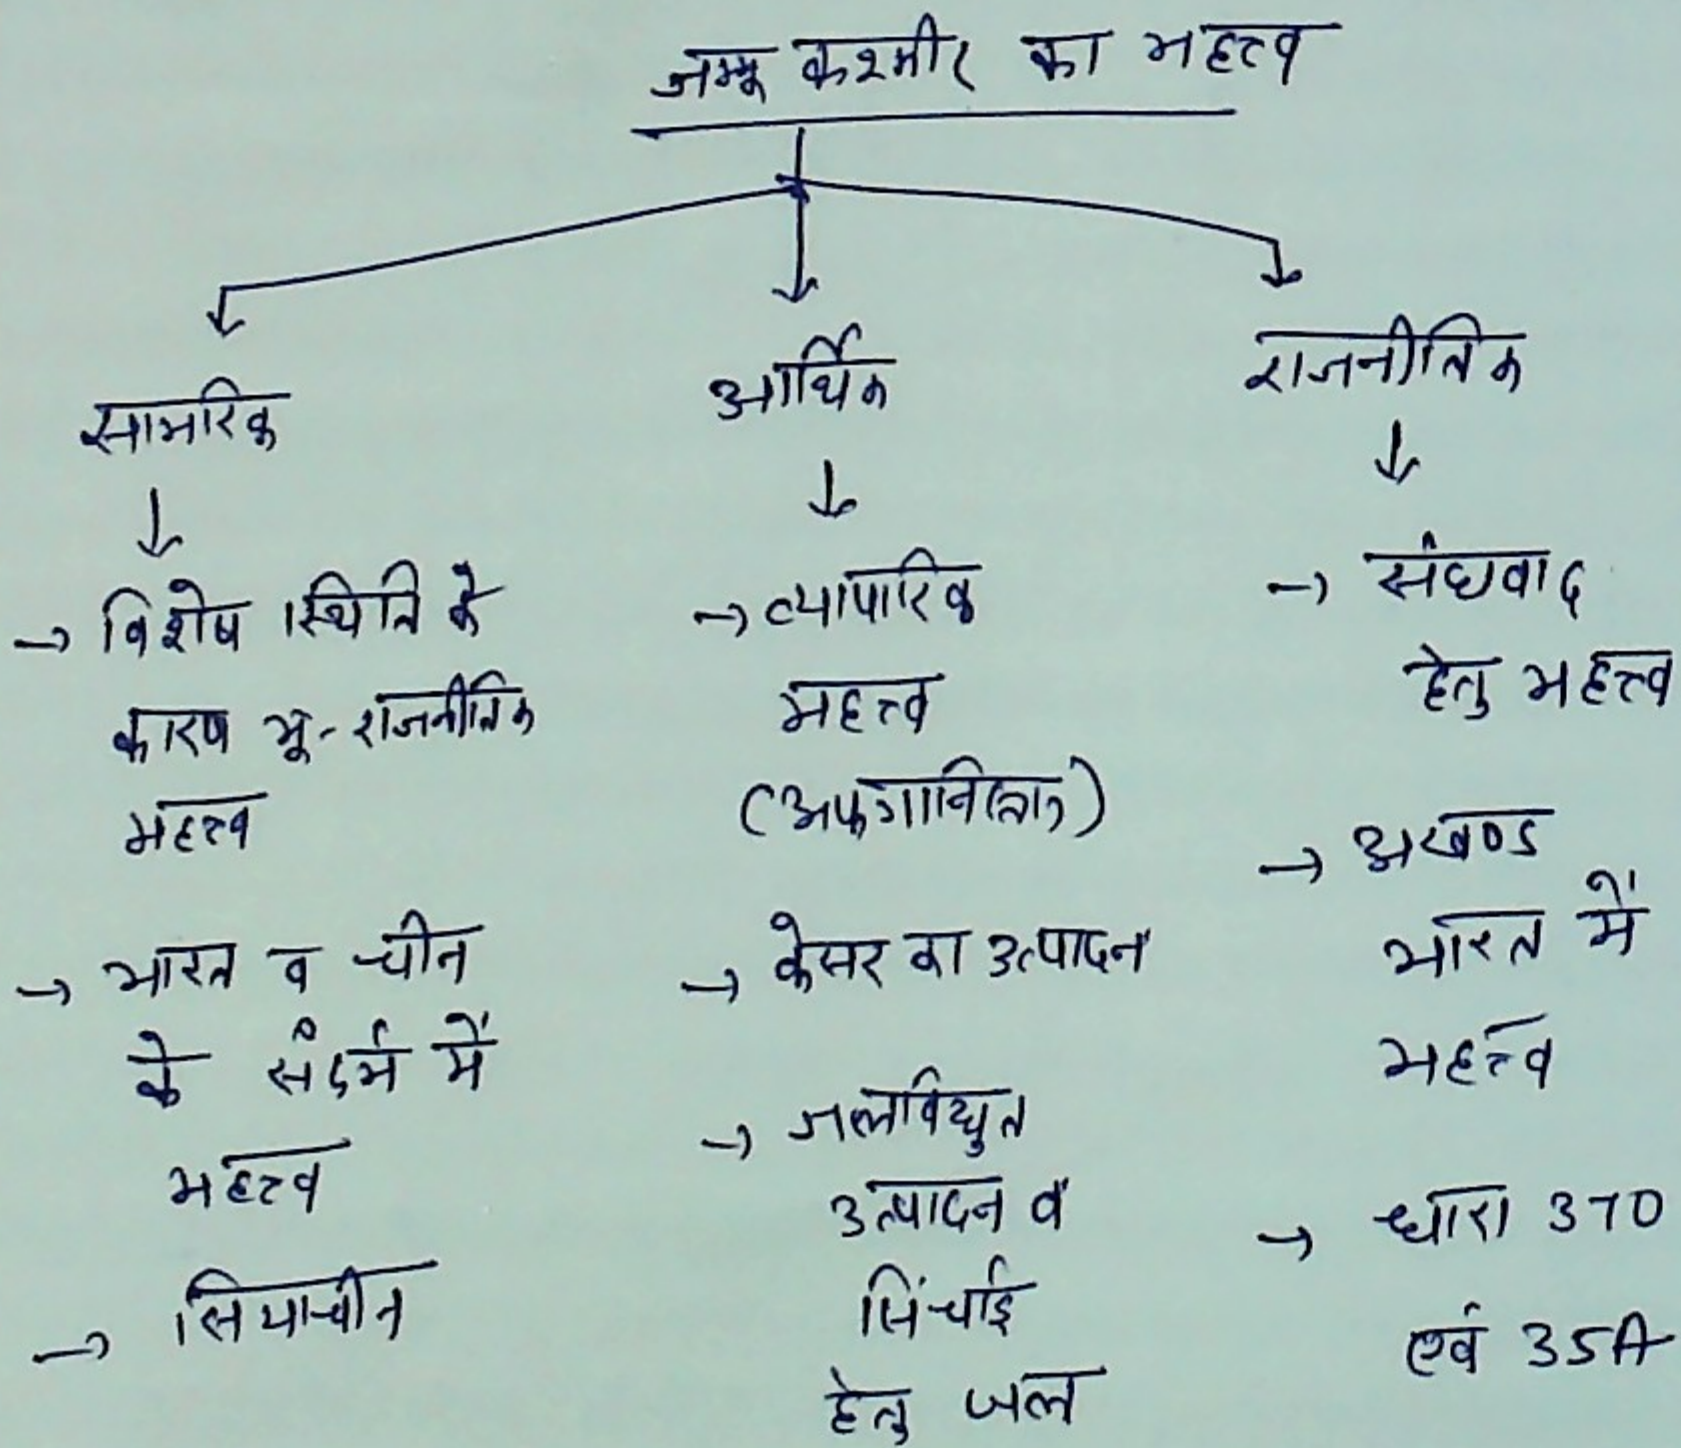 जम्मू कश्मीर का महत्त्व
सामरिक
→ विशेष स्थिति के
कारण भू-राजनीतिक
महत्त्व
→ भारत व चीन
के संदर्भ में
महत्त्व
→ सियाचीन
आर्थिक
→ व्यापारिक
महत्त्व
(अफगानिस्तान)
→ केसर का उत्पादन
→ जलविद्युत
उत्पादन व
सिंचाई
हेतु जल
राजनीतिक
→ संघवाद
हेतु महत्त्व
→ अखण्ड
भारत में
महत्त्व
→ धारा 370
एवं 35A